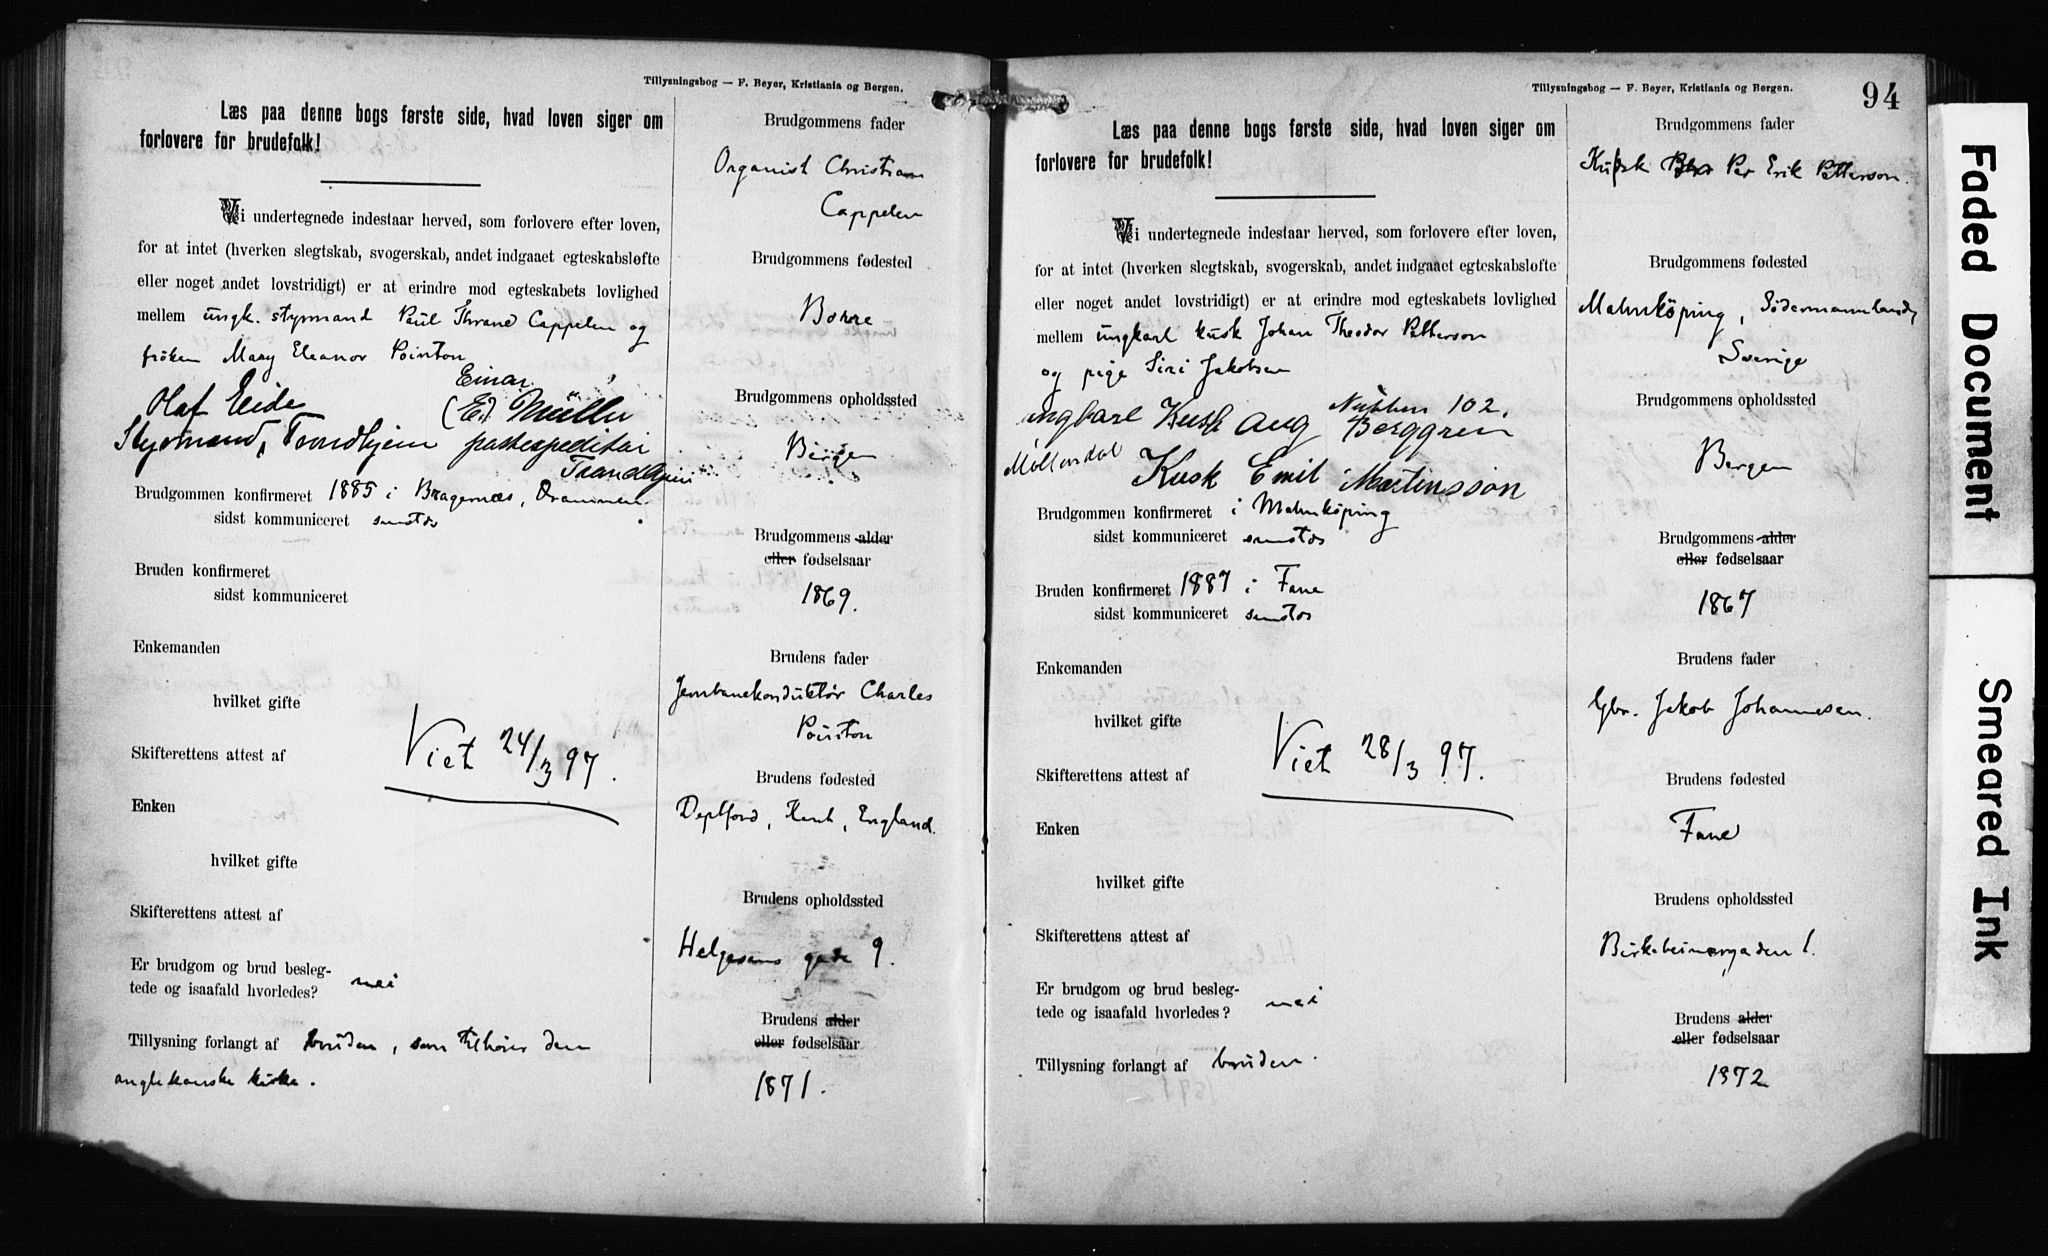 Tillysningsbog — F. Beyer, Kristiania og Bergen.
Læs paa denne bogs første side, hvad loven siger om
forlovere for brudefolk!
Vi undertegnede indestaar herved, som forlovere efter loven,
for at intet (hverken slegtskab, svogerskab, andet indgaaet egteskabsløfte
eller noget andet lovstridigt) er at erindre mod egteskabets lovlighed
mellem ungk. styrmand Paul Thrane Cappelen og
frøken Mary Eleanor Pointon
Olaf Eide
Styrmand, Trondhjem
Einar
(E.) Müller
postexpeditør
Trondhjem
Brudgommen konfirmeret 1885 i Bragernæs, Drammen
sidst kommuniceret samstds
Bruden konfirmeret
sidst kommuniceret
Enkemanden
hvilket gifte
Viet 24/3 97.
Skifterettens attest af
Enken
hvilket gifte
Skifterettens attest af
Er brudgom og brud besleg-
tede og isaafald hvorledes? nei
Tillysning forlangt af bruden, som tilhører den
anglikanske kirke.
Brudgommens fader
Organist Christian
Cappelen
Brudgommens fødested
Borre
Brudgommens opholdssted
Bergen
Brudgommens alder
eller fødselsaar
1869.
Brudens fader
Jernbanekonduktør Charles
Pointon
Brudens fødested
Deptford, Kent, England.
Brudens opholdssted
Helgesens gade 9.
Brudens alder
eller fødselsaar
1871.
Tillysningsbog — F. Beyer, Kristiania og Bergen.
94
Læs paa denne bogs første side, hvad loven siger om
forlovere for brudefolk!
Vi undertegnede indestaar herved, som forlovere efter loven,
for at intet (hverken slegtskab, svogerskab, andet indgaaet egteskabsløfte
eller noget andet lovstridigt) er at erindre mod egteskabets lovlighed
mellem ungkarl kusk Johan Theodor Petterson
og pige Siri Jakobsen
ungkarl Kusk Aug Berggren
102.
Møllendal
Kusk Emil Martinsson
Brudgommen konfirmeret i Malmköping
sidst kommuniceret samstds
Bruden konfirmeret 1887 i Fane
sidst kommuniceret samstds
Enkemanden
hvilket gifte
Viet 28/3 97.
Skifterettens attest af
Enken
hvilket gifte
Skifterettens attest af
Er brudgom og brud besleg-
tede og isaafald hvorledes? nei
Tillysning forlangt af bruden.
Brudgommens fader
Kusk Per Erik Petterson.
Brudgommens fødested
Malmköping, Södermannland,
Sverige
Brudgommens opholdssted
Bergen
Brudgommens alder
eller fødselsaar
1867
Brudens fader
Gbr. Jakob Johannesen.
Brudens fødested
Fane
Brudens opholdssted
Birkebeinergaden 1.
Brudens alder
eller fødselsaar
1872
Faded Document
Smeared Ink